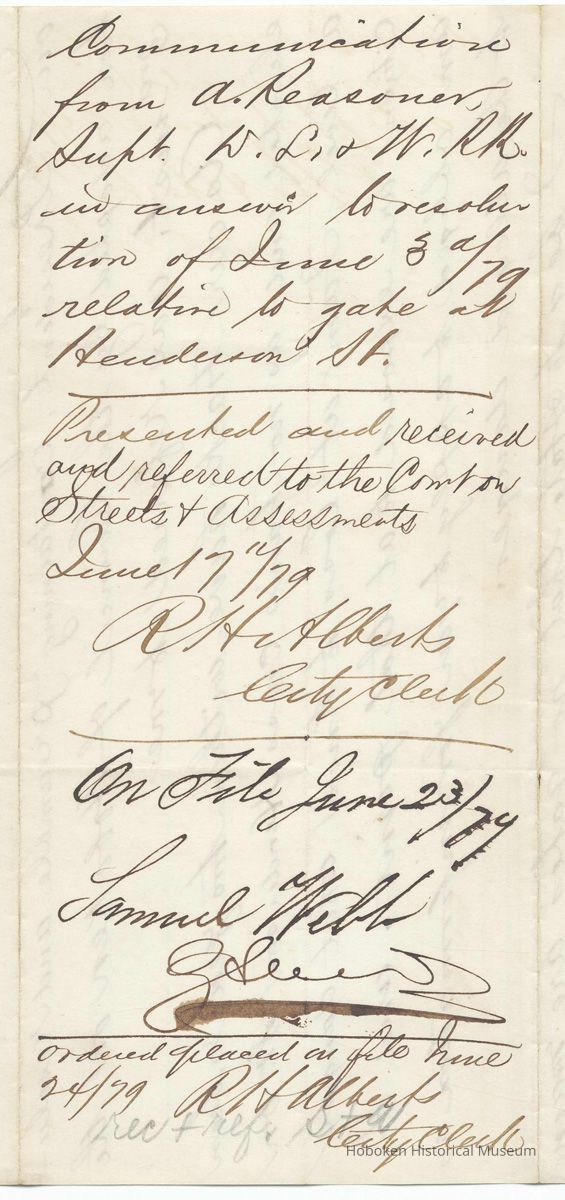 Communication
from A. Reasoner,
Supt. D. L. & W. RR.
in answer to resolu
tion of June 3d/79
relative to gate at
Henderson St.
Presented and received
and referred to the Comt on
Streets & Assessments
June 17th/79
R H Alberts
City Clerk
On File June 23/79
Samuel Webb
Ordered placed on file June
24/79 R H Alberts
City Clerk
rec & ref.
Hoboken Historical Museum